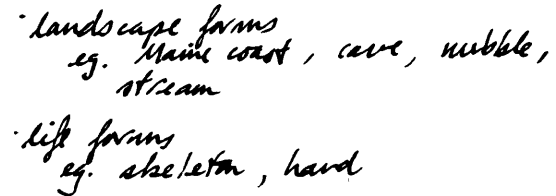 · landscape forms
eg. Maine coast, cave, nubble,
stream
· life forms
eg. skeleton, hand